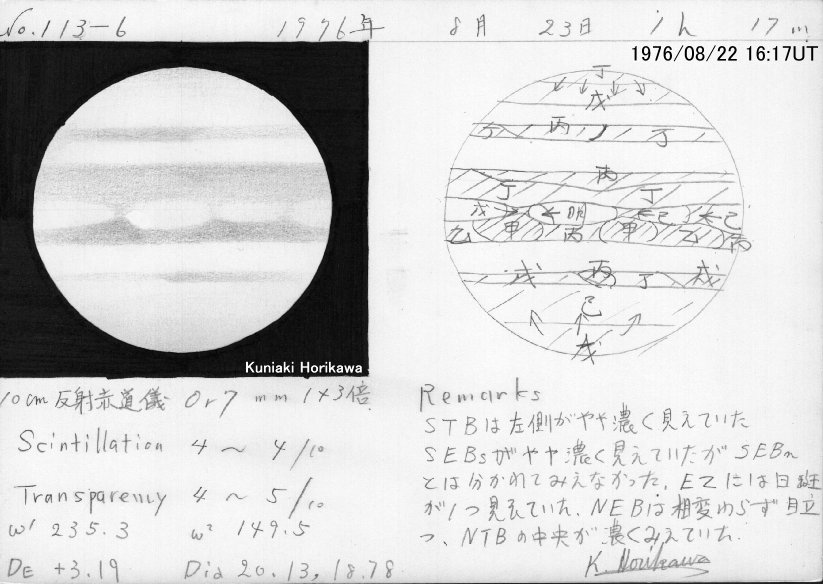 No.113-6 1976年 8月 23日 1h 17m
1976/08/22 16:17UT
丁
戊
丁 丙 丁
丙
丁 丁
戊 明 己 己
乙 甲 丙 甲 乙 丙
戊 丙 丁 戊
己
戊
Kuniaki Horikawa
10cm反射赤道儀 Or7mm 143倍
Scintillation 4~4/10
Transparency 4~5/10
ω¹ 235.3 ω² 149.5
DE +3.19 Dia 20.13, 18.78
Remarks
STBは左側がやや濃く見えていた
SEBsがやや濃く見えていたがSEBn
とは分かれてみえなかった. EZには白斑
が1つ見えていた. NEBは相変わらず目立
つ、NTBの中央が濃くみえていた.
K. Horikawa